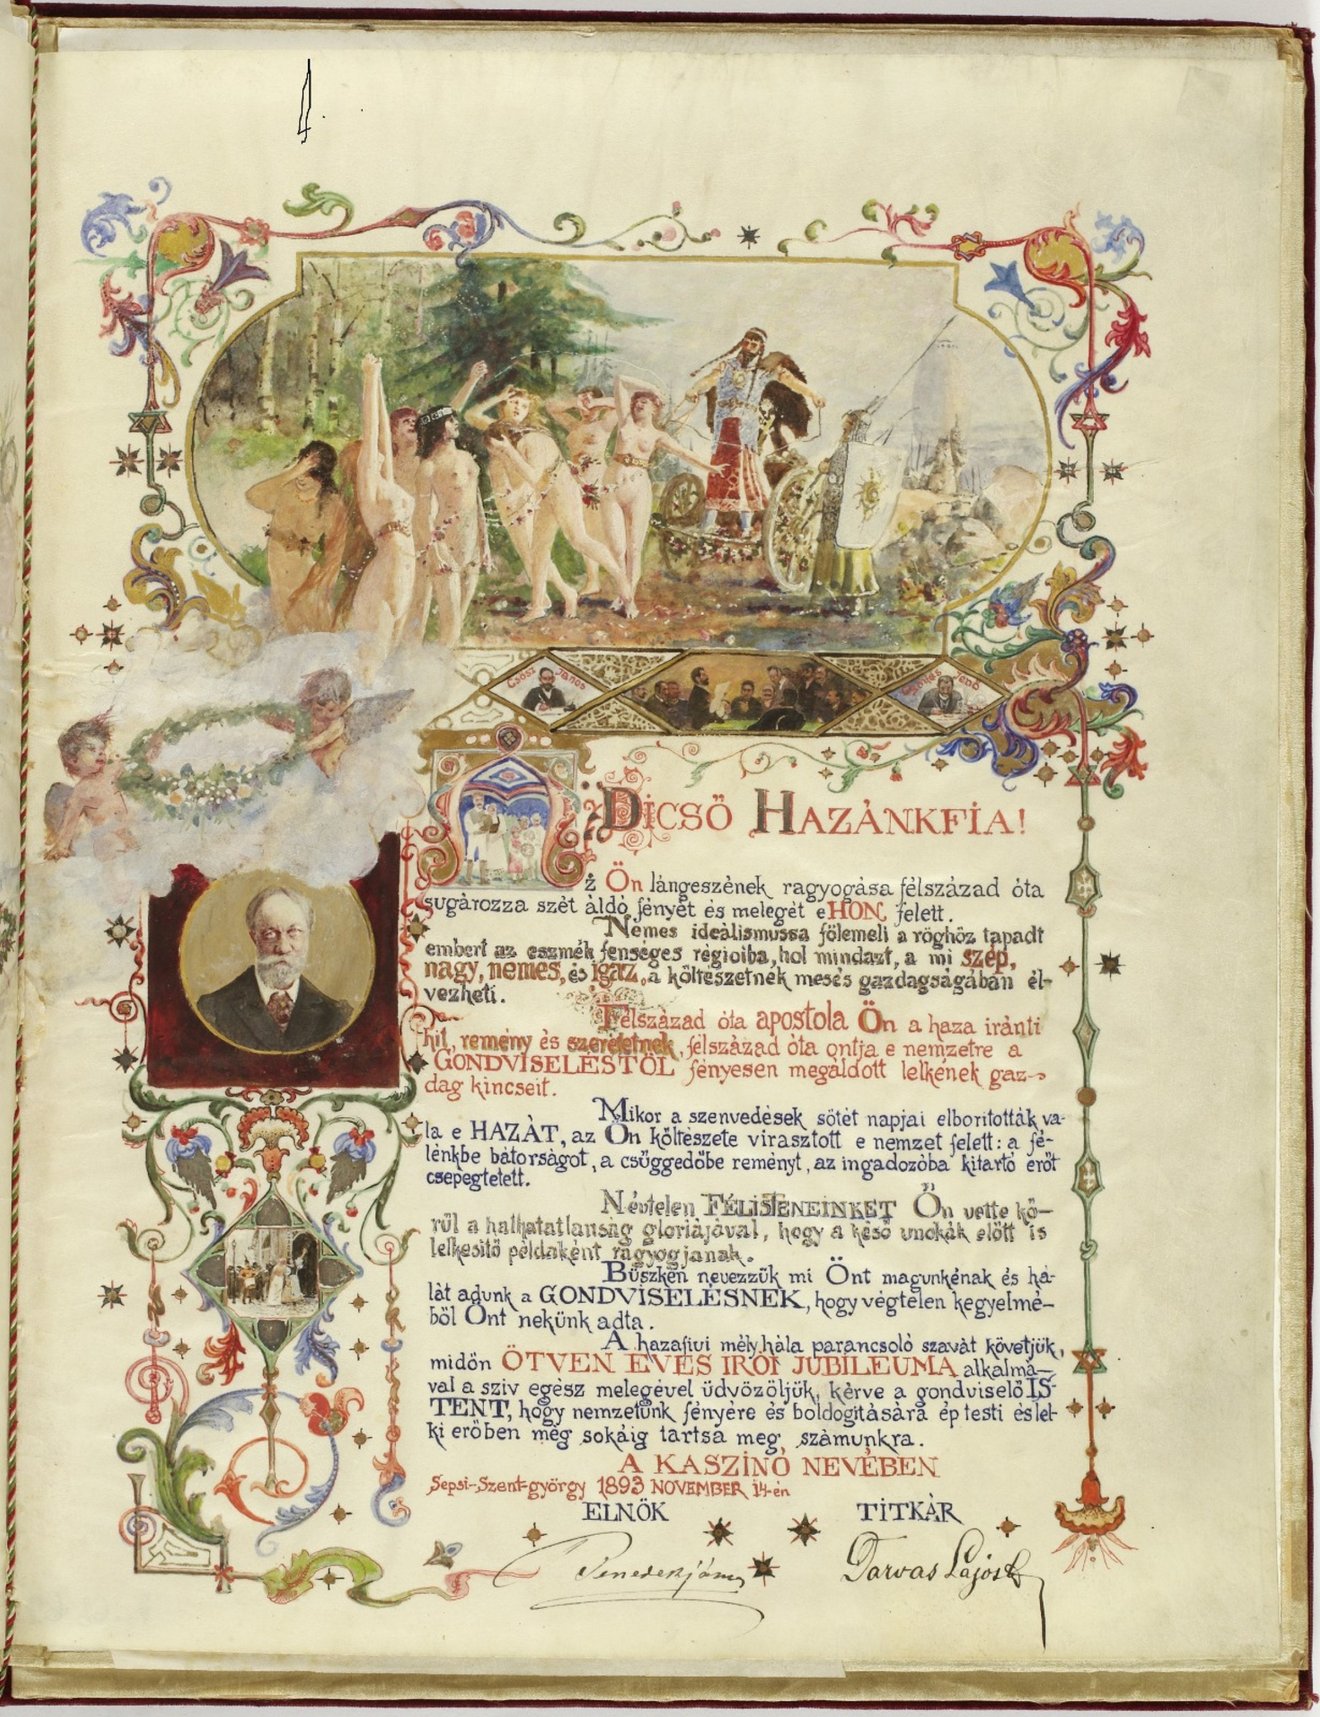 Csász János
Dicső Hazánkfia!
Az Ön lángeszének ragyogása félszázad óta
sugározza szét áldó fényét és melegét e HON felett.
Nemes ideálismussa fölemeli a röghöz tapadt
embert az eszmék fenséges régioiba, hol mindazt, a mi szép,
nagy, nemes, és igaz, a költészetnek mesés gazdagságában él-
vezheti.
Félszázad óta apostola Ön a haza iránti
hit, remény és szeretetnek, félszázad óta ontja e nemzetre a
GONDVISELÉSTŐL fényesen megáldott lelkének gaz-
dag kincseit.
Mikor a szenvedések sötét napjai elborították va-
la e HAZÁT, az Ön költészete virasztott e nemzet felett: a fé-
lénkbe bátorságot, a csüggedőbe reményt, az ingadozóba kitartó erőt
csepegtetett.
Névtelen FÉLISTENEINKET Ön vette kö-
rül a halhatatlanság gloriájával, hogy a késő unokák előtt is
lelkesitő példaként ragyogjanak.
Büszkén nevezzük mi Önt magunkénak és há-
lát adunk a GONDVISELÉSNEK, hogy végtelen kegyelmé-
ből Önt nekünk adta.
A hazafiui mély hála parancsoló szavát követjük,
midőn ÖTVEN ÉVES IRÓI JUBILEUMA alkalmá-
val a sziv egész melegével üdvözöljük, kérve a gondviselő IS-
TENT, hogy nemzetünk fényére és boldogitására ép testi és lel-
ki erőben még sokáig tartsa meg számunkra.
A KASZINÓ NEVÉBEN
Sepsi-Szent-györgy 1893 NOVEMBER 14-én
ELNÖK TITKÁR
Darvas Lajos